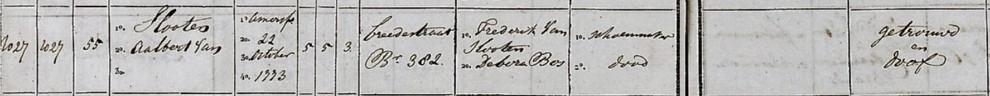 1027 1027 55 v. Slooten
v. Aalbert Van
v.
v. Amersf
v. 22
v. October
v. 1773
5 5 3
breedestraat
Bn. 382.
v. Frederik Van
Slooten
v. Debora Bos
v. Schoenmaker
v. dood
getrouwd
en
doof